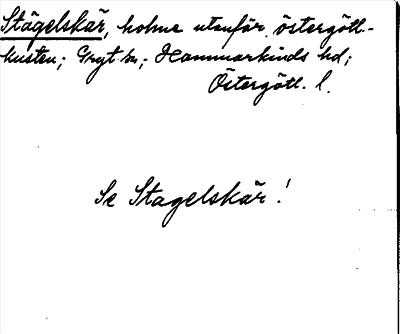 Stägelskär, holme utanför östergötl-
kusten; Gryt sn; Hammarkinds hd;
Östergötl. l.
Se Stagelskär!